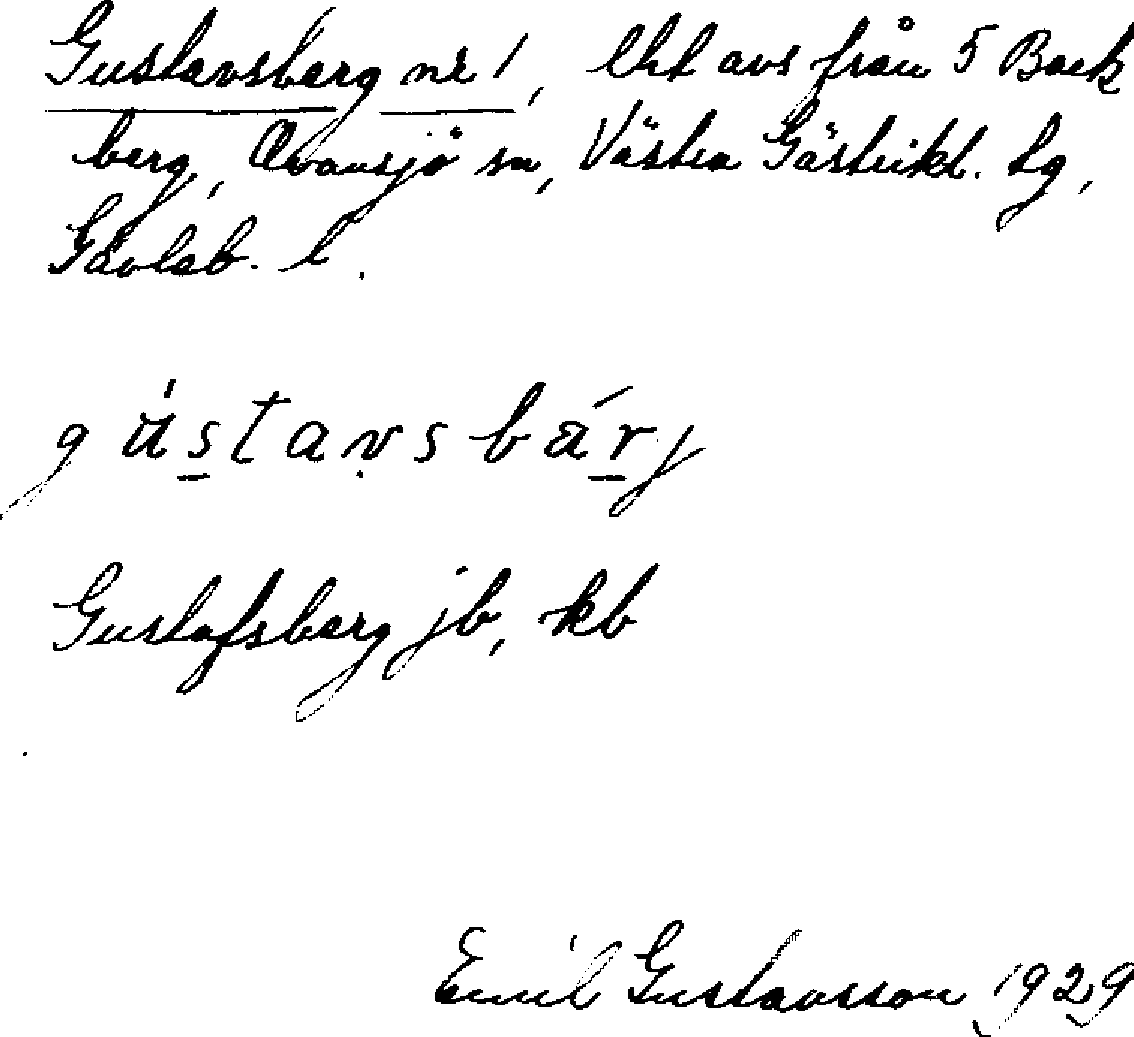 Gustavsberg nr 1, lht avs från 5 Back
berg, Ovansjö sn, Västra Gästrikl. tg,
Gävleb. l.
gústavsbárj
Gustafsberg jb, kb
Emil Gustavsson 1929